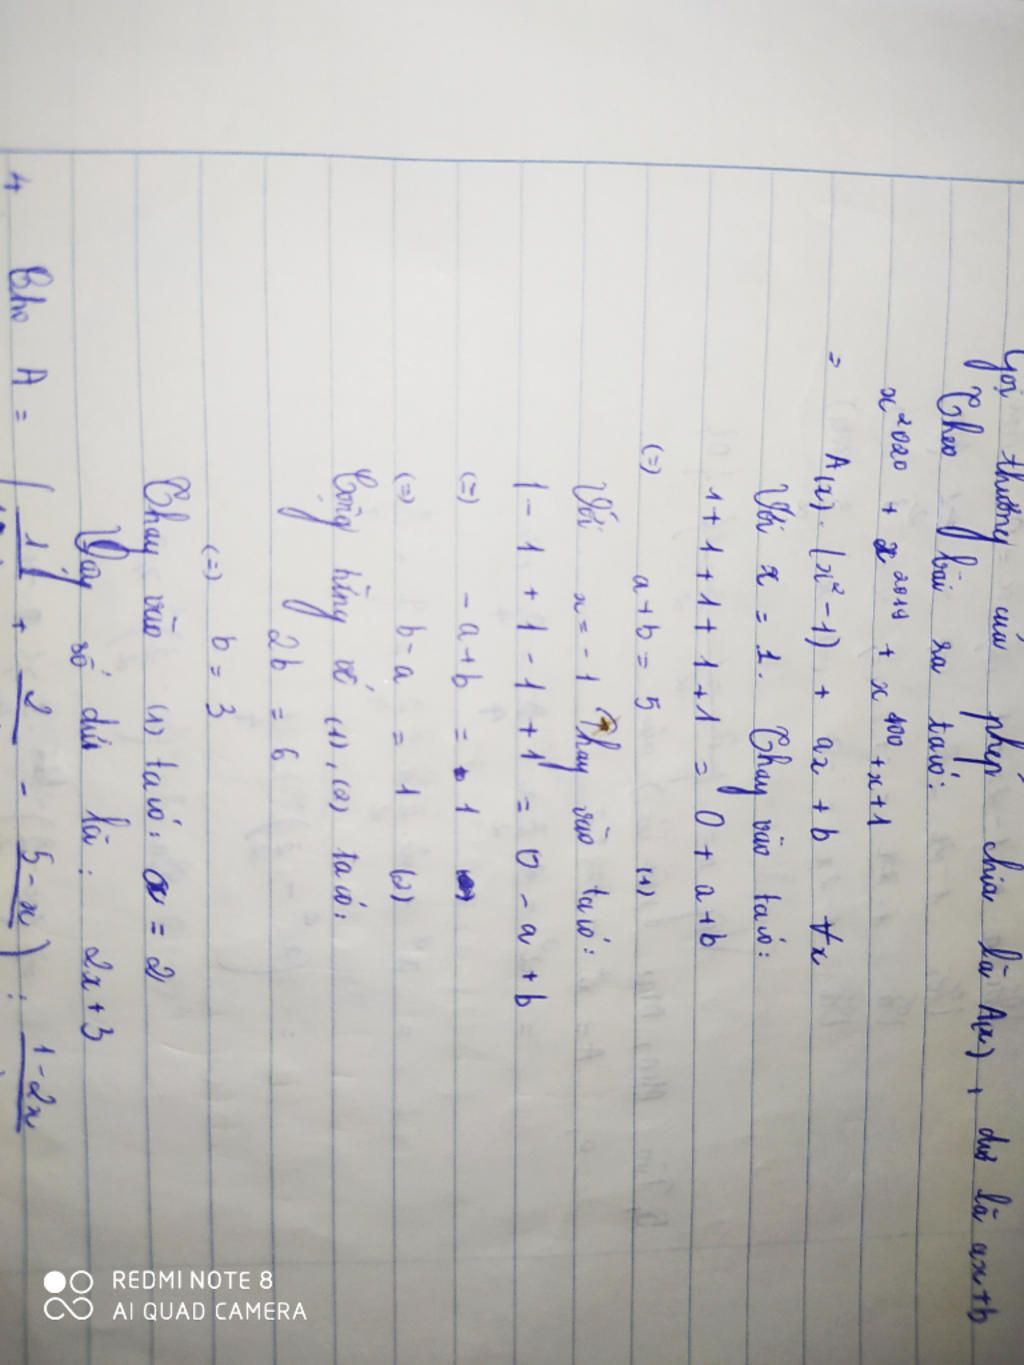 Gọi thương của phép chia là A(x), dư là ax+b
Theo bài ra ta có:
x^2020 + x^2019 + x^100 + x + 1
= A(x). (x² - 1) + ax + b ∀x
Với x = 1. Thay vào ta có:
1 + 1 + 1 + 1 + 1 = 0 + a + b
(=) a + b = 5 (1)
Với x = - 1 Thay vào ta có:
1 - 1 + 1 - 1 + 1 = 0 - a + b
(=) - a + b = 1
(=) b - a = 1 (2)
Cộng từng vế (1), (2) ta có:
2b = 6
(=) b = 3
Thay vào (1) ta có: a = 2
Vậy số dư là: 2x + 3
4 Cho A = ( 1 + 2 - 5 - x ) : 1 - 2x
REDMI NOTE 8
AI QUAD CAMERA